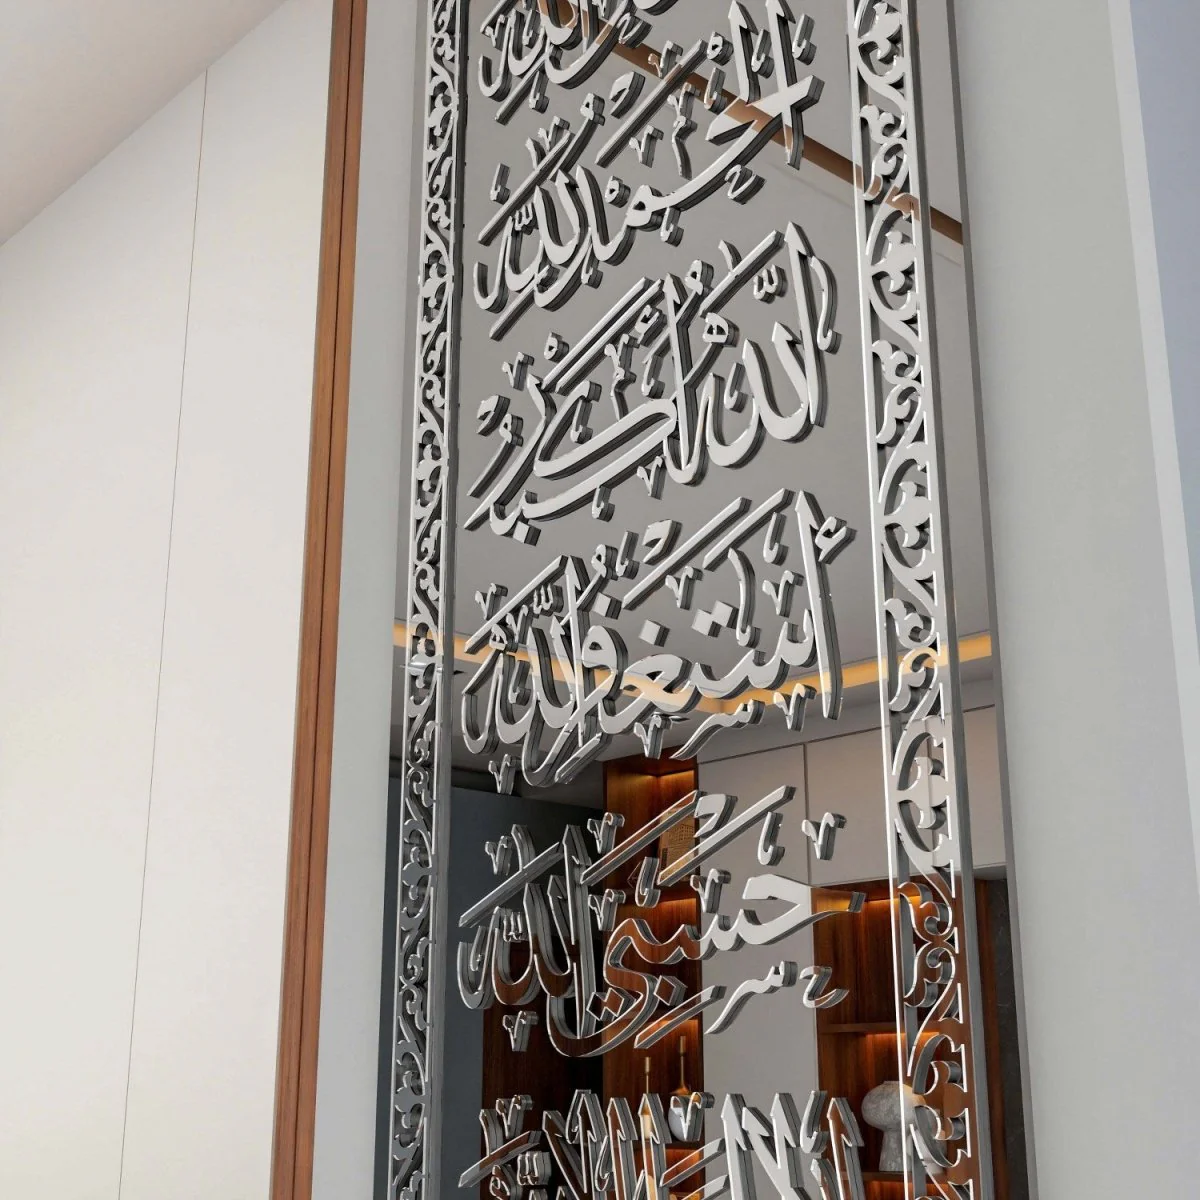 الله
الْحَمْدُ لِلّٰهِ
اللّٰهُ أَكْبَرُ
أَسْتَغْفِرُ اللّٰهَ
حَسْبِيَ اللّٰهُ